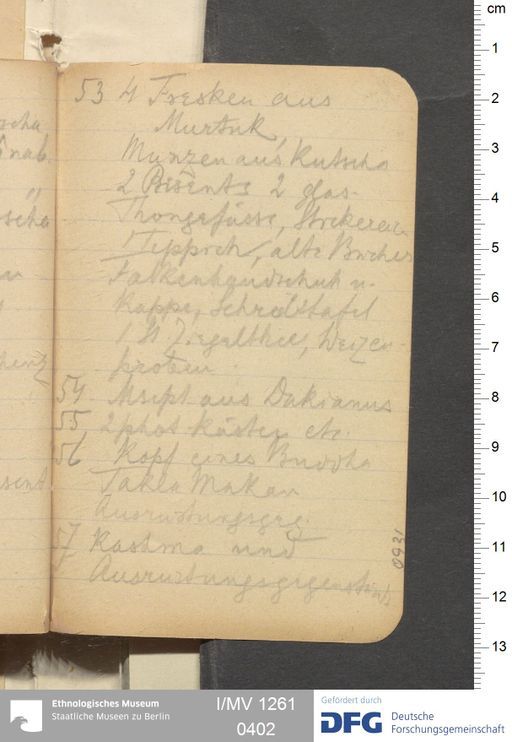 53 4 Fresken aus
Murtuk
Münzen aus Kutscha
2 glas-
Thongefässe, Stickereien
1 Teppich, alte Bücher
Falkenhandschuh u.
Kappe, Schreibtafel
1 Ziegelthee, Weizen-
54 Mscpt aus Dakianus
55 2 phot. Kästen etc.
56 Kopf eines Buddha
Takla Makan
Ausrüstungsgeg.
57 und
Ausrüstungsgegenständ
0931
cm
1
2
3
4
5
6
7
8
9
10
11
12
13
Ethnologisches Museum
Staatliche Museen zu Berlin
I/MV 1261
0402
Gefördert durch
DFG Deutsche
Forschungsgemeinschaft